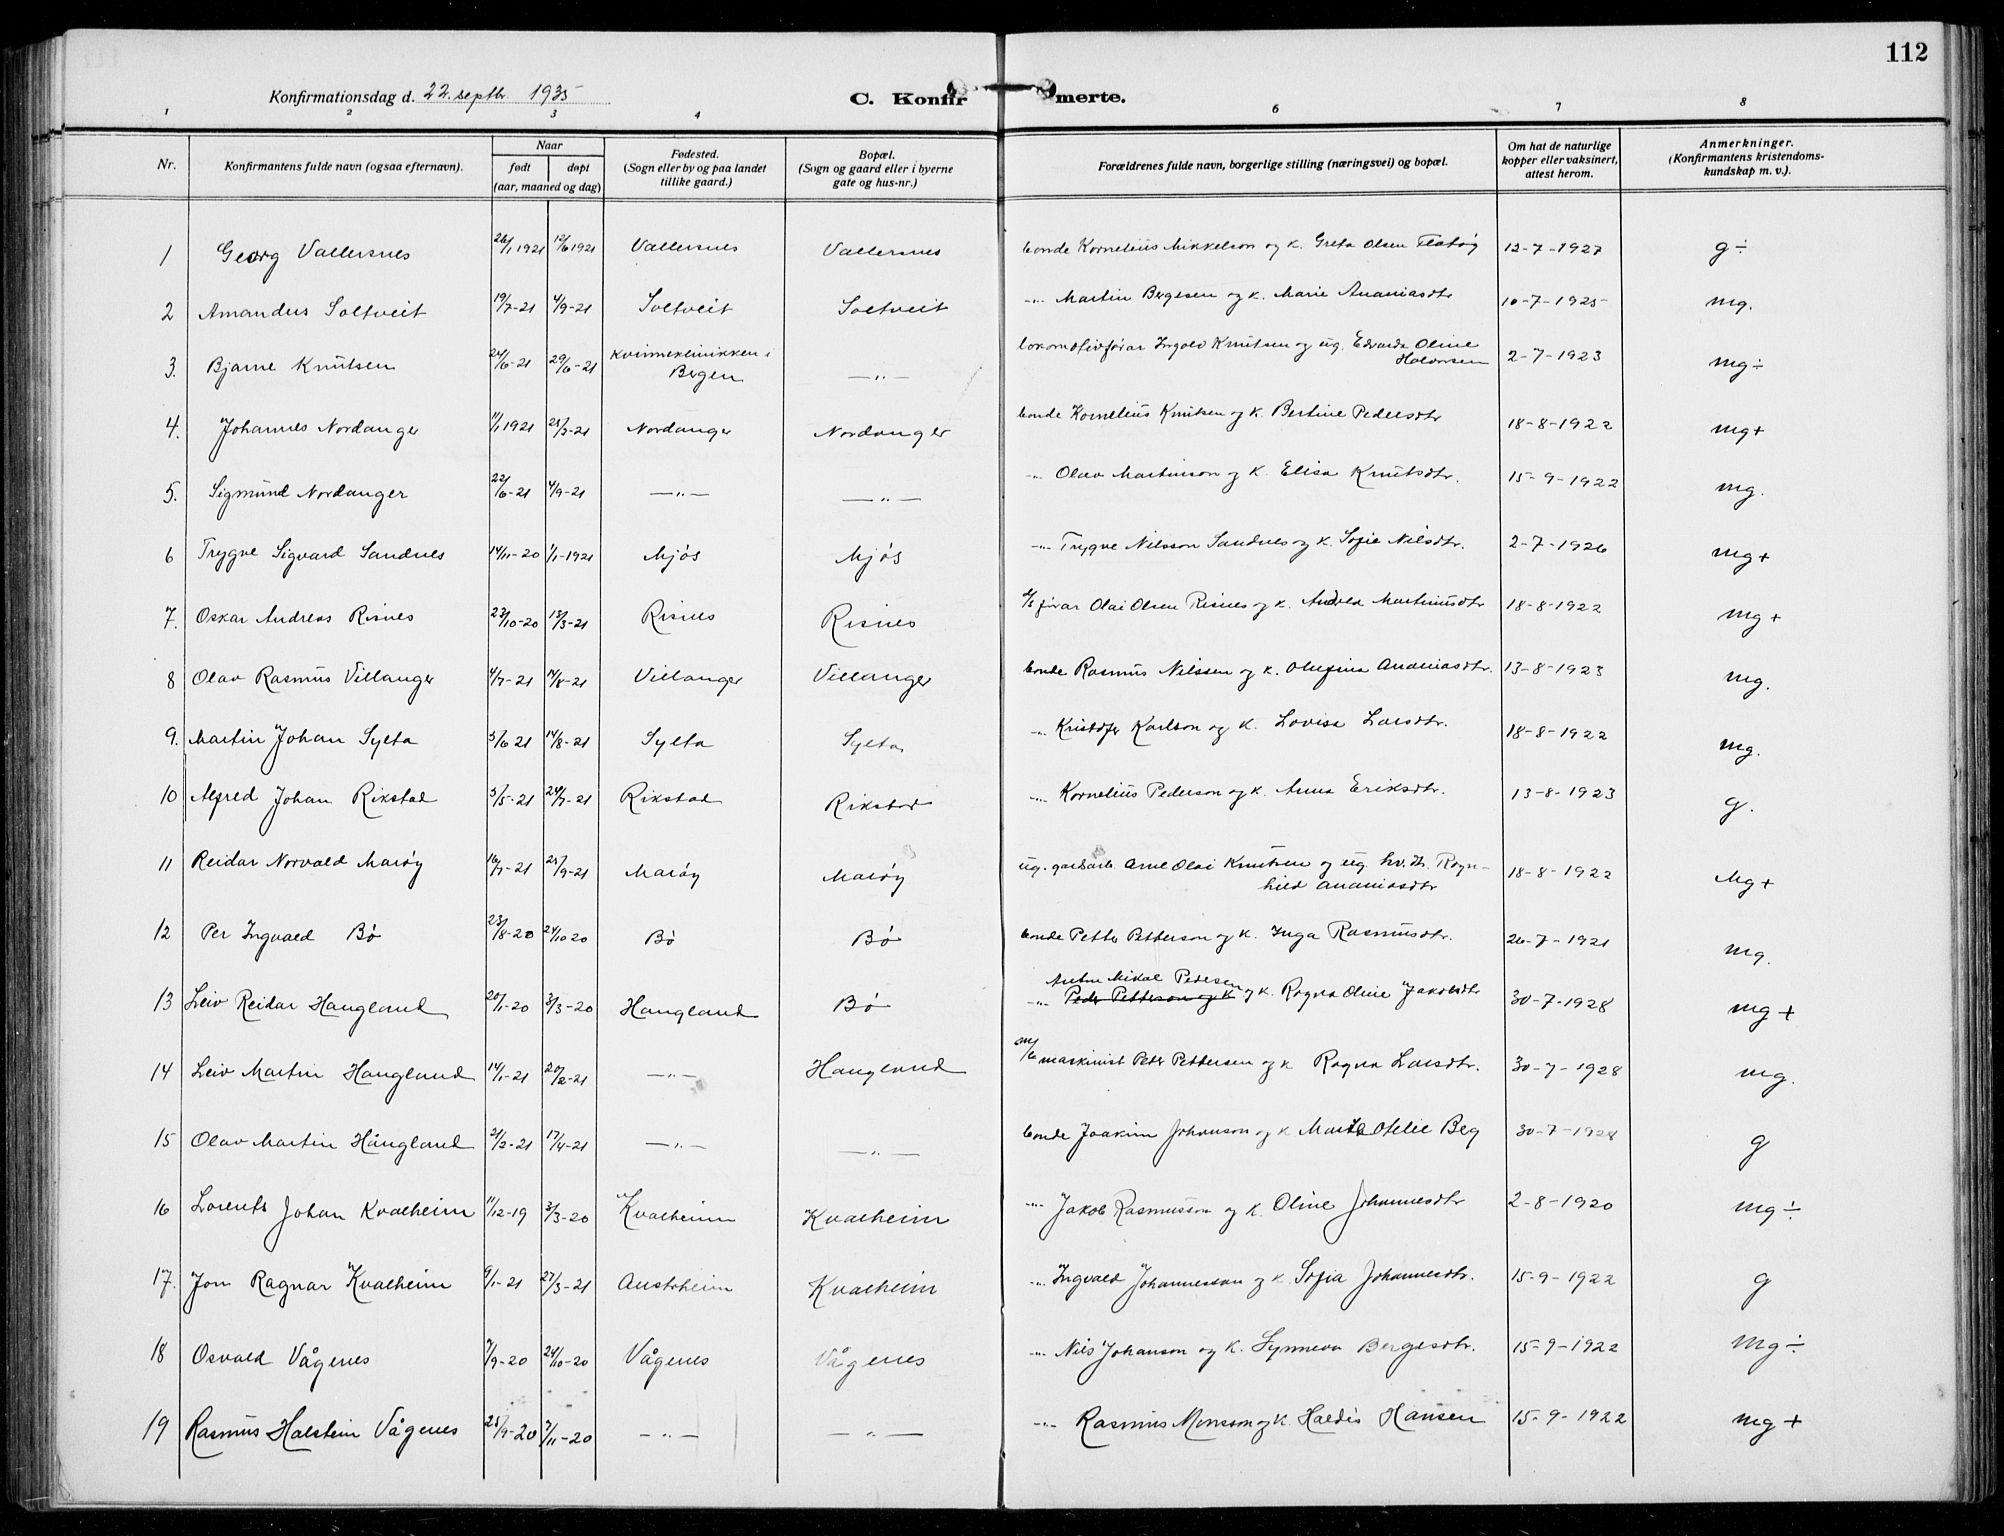 112
Konfirmationsdag d. 22. septbr. 1935
C. Konfirmerte.
1 2 3 4 6 7 8
Nr. | Konfirmantens fulde navn (ogsaa efternavn). | Naar født døpt (aar, maaned og dag) | Fødested. (Sogn eller by og paa landet tillike gaard.) | Bopæl. (Sogn og gaard eller i byerne gate og hus-nr.) | Forældrenes fulde navn, borgerlige stilling (næringsvei) og bopæl. | Om hat de naturlige kopper eller vaksinert, attest herom. | Anmerkninger. (Konfirmantens kristendoms-kundskap m. v.).
1 Georg Vallersnes 26/1 1921 12/6 1921 Vallersnes Vallersnes bonde Kornelius Mikkelson og k. Greta Olsen Flatøy 12-7-1927 g ÷
2 Amandus Soltveit 19/7-21 4/9-21 Soltveit Soltveit -"- Martin Bergesen og k. Marie Ananiasdtr 10-7-1925 mg.
3. Bjarne Knutsen 24/6-21 29/6-21 Kvinneklinikken i Bergen —"— lokomotivførar Ingolv Knutsen og ug. Edvarda Oline Halvorsen 2-7-1923 mg ÷
4. Johannes Nordanger 11/1 1921 28/3-21 Nordanger Nordanger bonde Kornelius Knutsen og k. Bertine Pedersdtr 18-8-1922 mg+
5. Sigmund Nordanger 22/6-21 4/9-21 —"— —"— -"- Olav Martinson og k. Elisa Knutsdtr. 15-9-1922 mg.
6 Trygve Sigvard Sandnes 14/11-20 1/1-1921 Mjøs Mjøs -"- Trygve Nilsson Sandnes og k. Sofie Nilsdtr. 2-7-1926 mg+
7. Oskar Andreas Risnes 23/10-20 13/3-21 Risnes Risnes d/s førar Olai Olsen Risnes og k. Andrea Martinusdtr 18-8-1922 mg+
8 Olav Rasmus Villanger 4/7-21 14/8-21 Villanger Villanger bonde Rasmus Nilssen og k. Olufina Ananiasdtr. 13-8-1923 mg.
9. Martin Johan Sylta 3/6 21 14/8-21 Sylta Sylta -"- Kristofer Karlson og k. Lovisa Larsdtr. 18-8-1922 mg.
10 Alfred Johan Rikstad 3/5-21 24/7-21 Rikstad Rikstad -"- Kornelius Pederson og k. Anna Eriksdtr. 13-8-1923 g.
11 Reidar Norvald Marøy 16/7-21 25/9-21 Marøy Marøy ug. gardsarb. Arne Olai Knutsen og ug. hv.dtr. Ragnhild Ananiasdtr 18-8-1922 Mg+
12 Per Ingvald Bø 23/8-20 24/10 20 Bø Bø bonde Petter Petterson og k. Inga Rasmusdtr. 26-7-1921 mg.
13 Leiv Reidar Haugland 20/1-20 3/3-20 Haugland Bø -"- Anton Mikal Pedersen Peder Petterson og k og k. Ragna Oline Jakobsdtr 30-7-1928 mg+
14 Leiv Martin Haugland 14/1-21 20/2-21 —"— Haugland m/b maskinist Peter Pettersen og k Ragna Larsdtr. 30-7-1928 mg.
15 Olav Martin Haugland 21/2-21 17/4-21 —"— —"— bonde Joakim Johanson og k Marta Otelie Beg 30-7-1928 g
16 Lorents Johan Kvalheim 11/12-19 3/3-20 Kvalheim Kvalheim -"- Jakob Rasmusson og k. Oline Johannesdtr 2-8-1920 mg ÷
17. Jon Ragnar Kvalheim 9/1-21 27/3-21 Austrheim Kvalheim -"- Ingvald Johannesson og k. Sofia Johannesdtr. 15-9-1922 g
18 Osvald Vågenes 7/9-20 24/10-20 Vågenes Vågenes -"- Nils Johanson og k. Synneva Bergesdtr. 15-9-1922 mg ÷
19 Rasmus Halstein Vågenes 25/9-20 7/11-20 —"— —"— -"- Rasmus Monsson og k. Haldis Hansen 15-9-1922 mg+